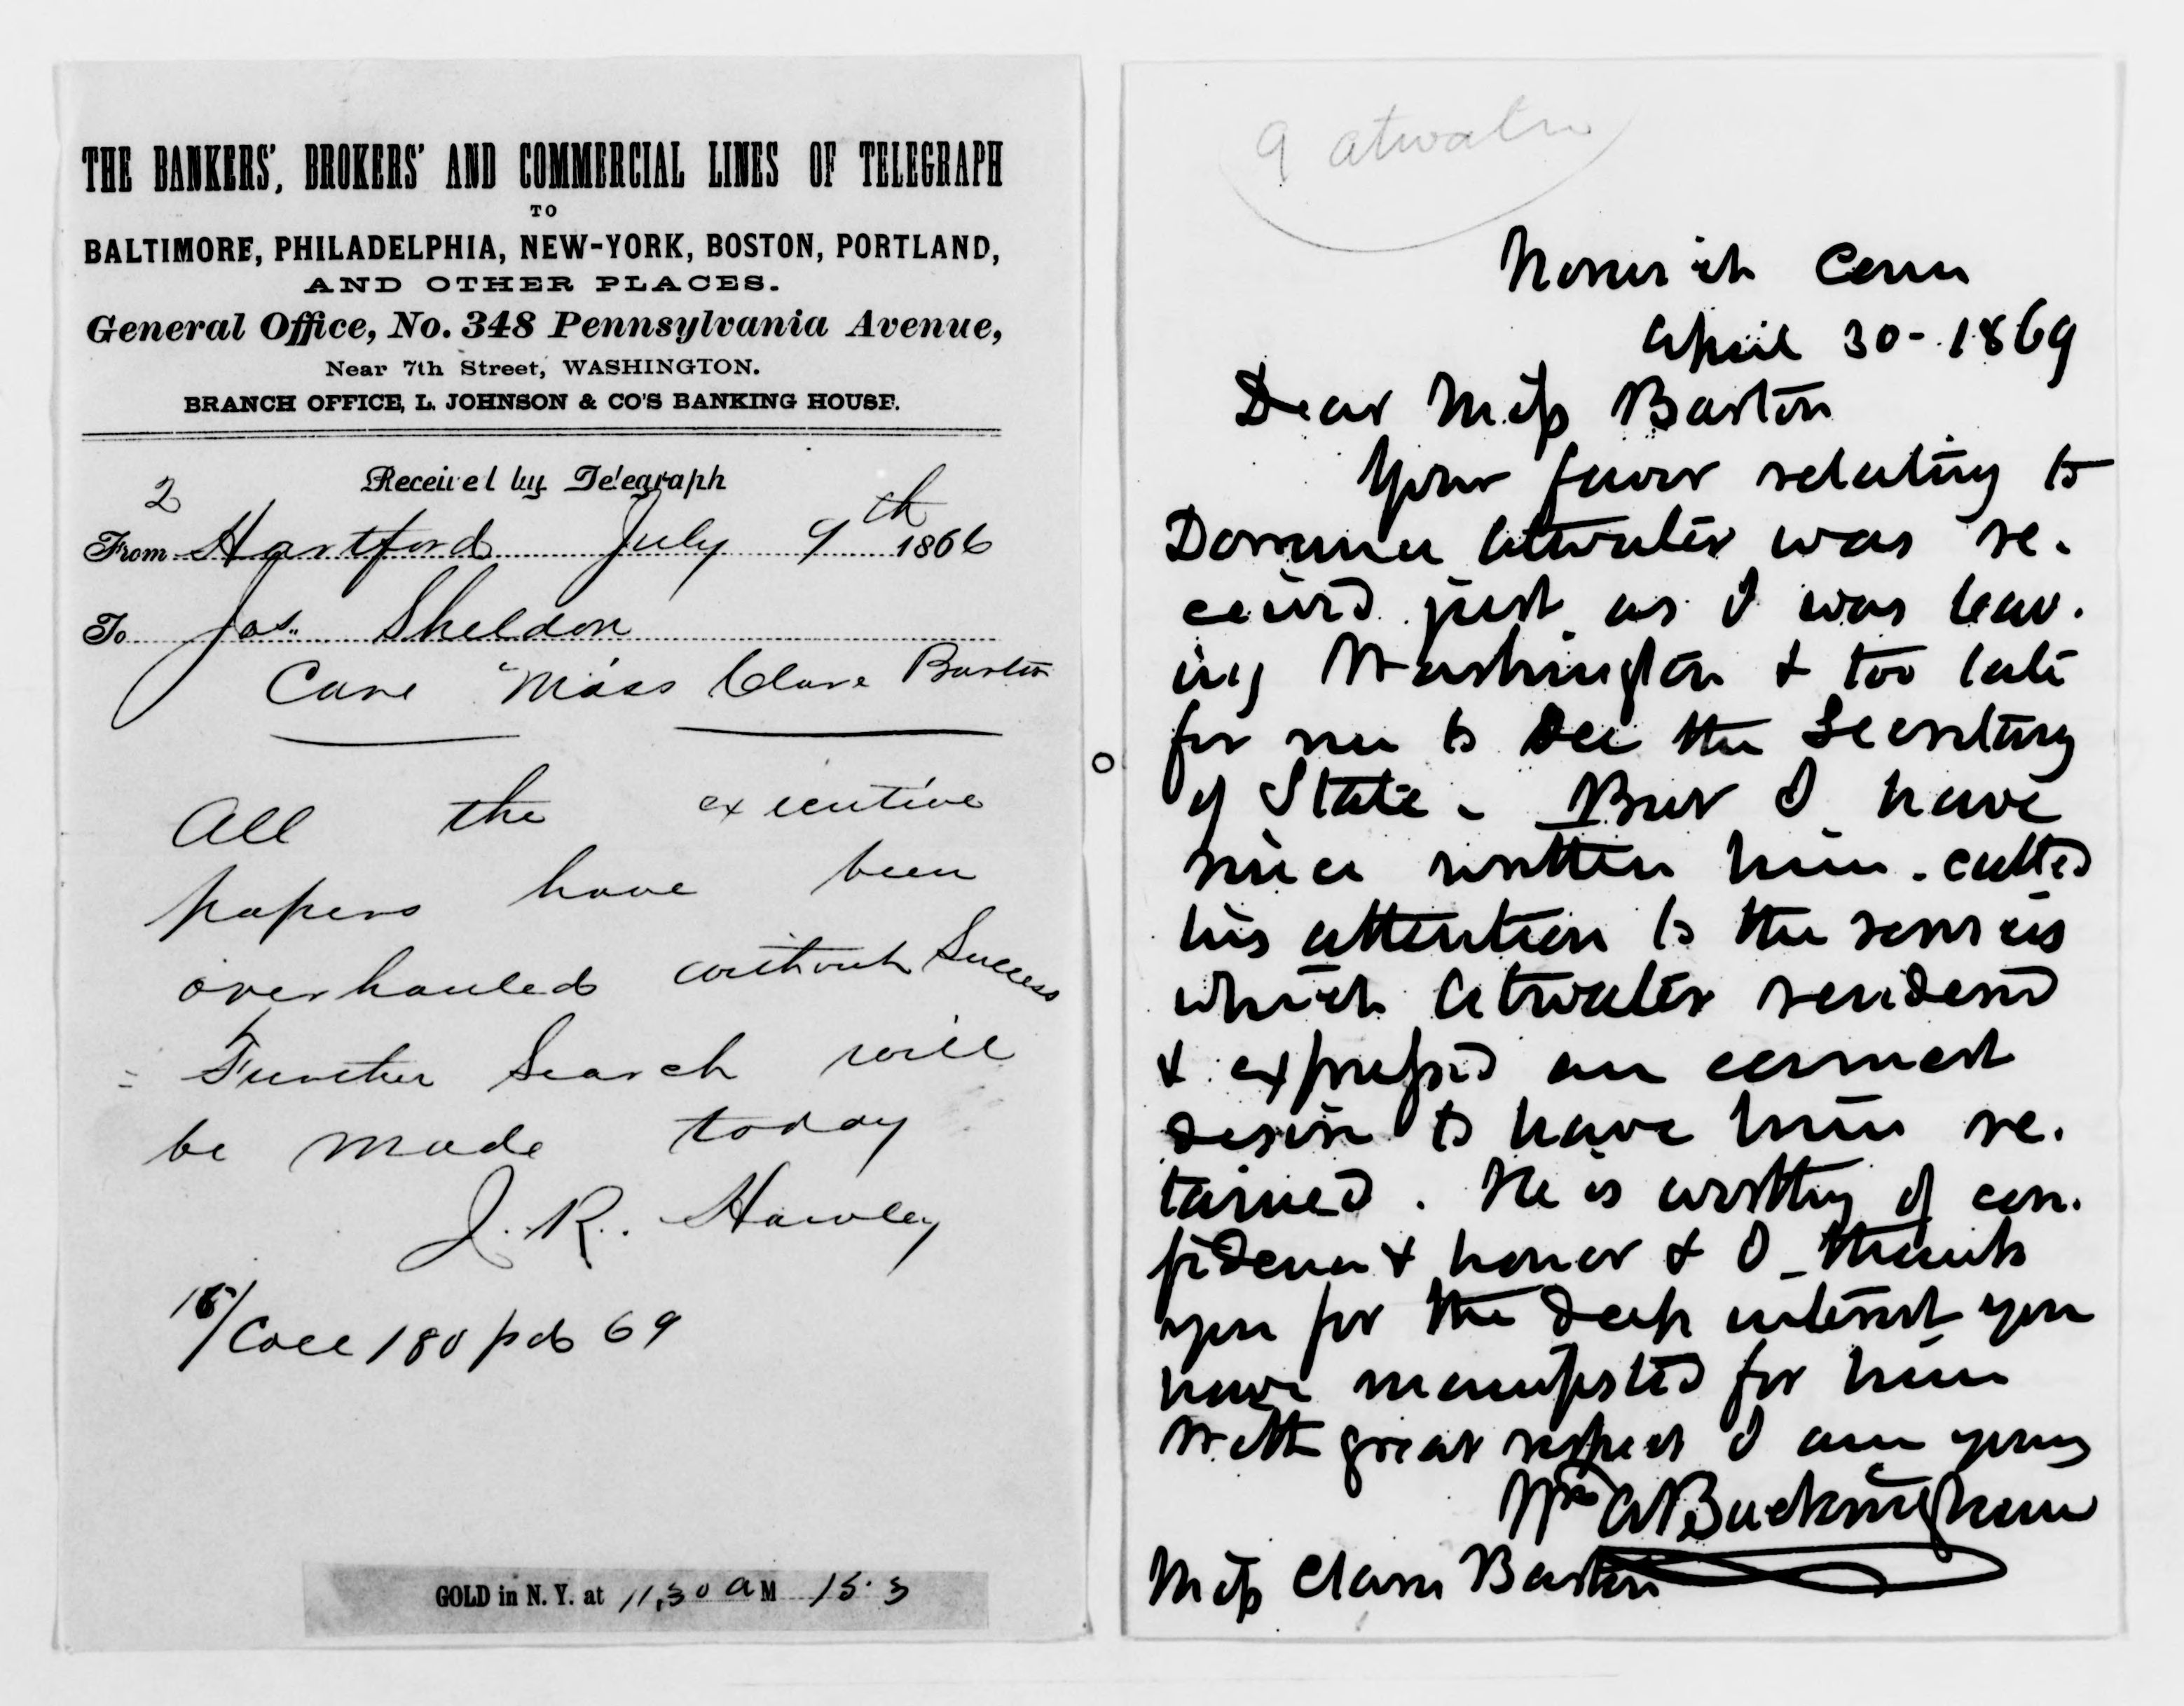 THE BANKERS', BROKERS' AND COMMERCIAL LINES OF TELEGRAPH
TO
BALTIMORE, PHILADELPHIA, NEW-YORK, BOSTON, PORTLAND,
AND OTHER PLACES.
General Office, No. 348 Pennsylvania Avenue,
Near 7th Street, WASHINGTON.
BRANCH OFFICE, L. JOHNSON & CO'S BANKING HOUSE.
Received by Telegraph
2
From Hartford July 9th 1866
To Jas. Sheldon
Care Miss Clara Barton
All the executive
papers have been
overhauled without Success
Further Search will
be made today
J. R. Hawley
Coll 180 pd 69
GOLD in N. Y. at 11,30 AM 15.3
9 Atwater
Norwich Conn
April 30-1869
Dear Miss Barton
Your favor relating to
Dorrance Atwater was re-
ceived just as I was leav-
ing Washington & too late
for me to see the Secretary
of State. But I have
since written him. called
his attention to the services
which Atwater rendered
& expressed an earnest
desire to have him re-
tained. He is worthy of con-
fidence & honor & I thank
you for the deep interest you
have manifested for him
With great respect I am yours
Wm A Buckingham
Miss Clara Barton